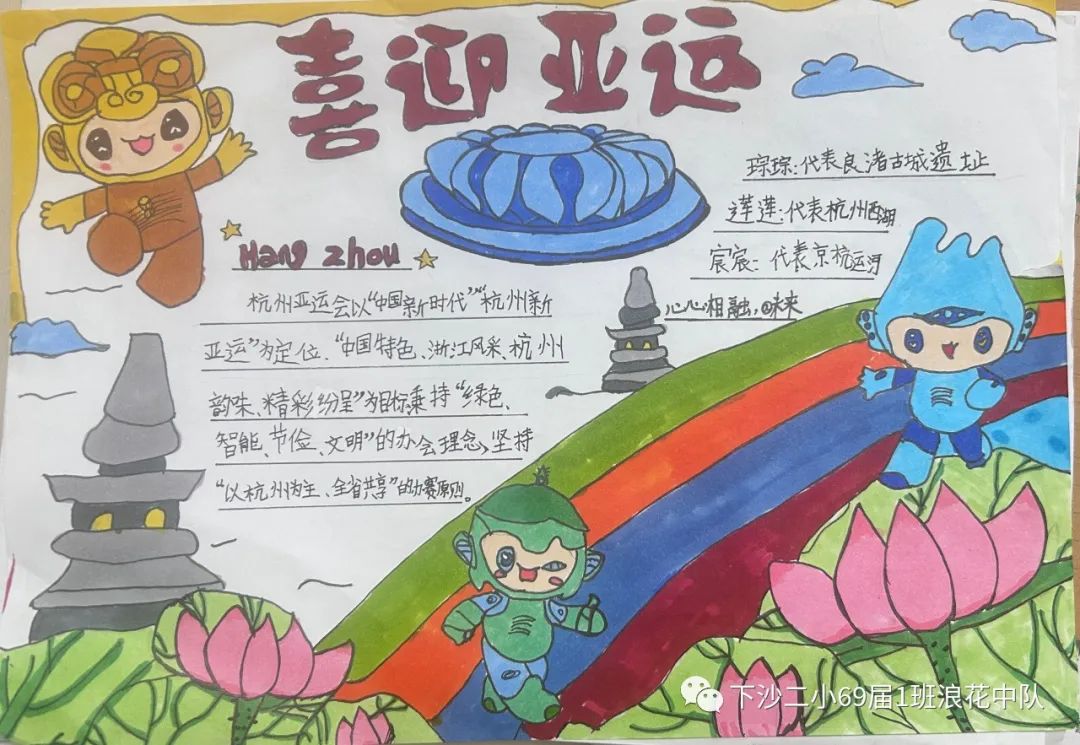 喜迎亚运
琮琮:代表良渚古城遗址
莲莲:代表杭州西湖
宸宸:代表京杭运河
心心相融,@未来
Hang zhou
杭州亚运会以“中国新时代”“杭州新
亚运”为定位、“中国特色、浙江风采、杭州
韵味、精彩纷呈”为目标,秉持“绿色、
智能、节俭、文明”的办会理念,坚持
“以杭州为主、全省共享”的办赛原则。
下沙二小69届1班浪花中队